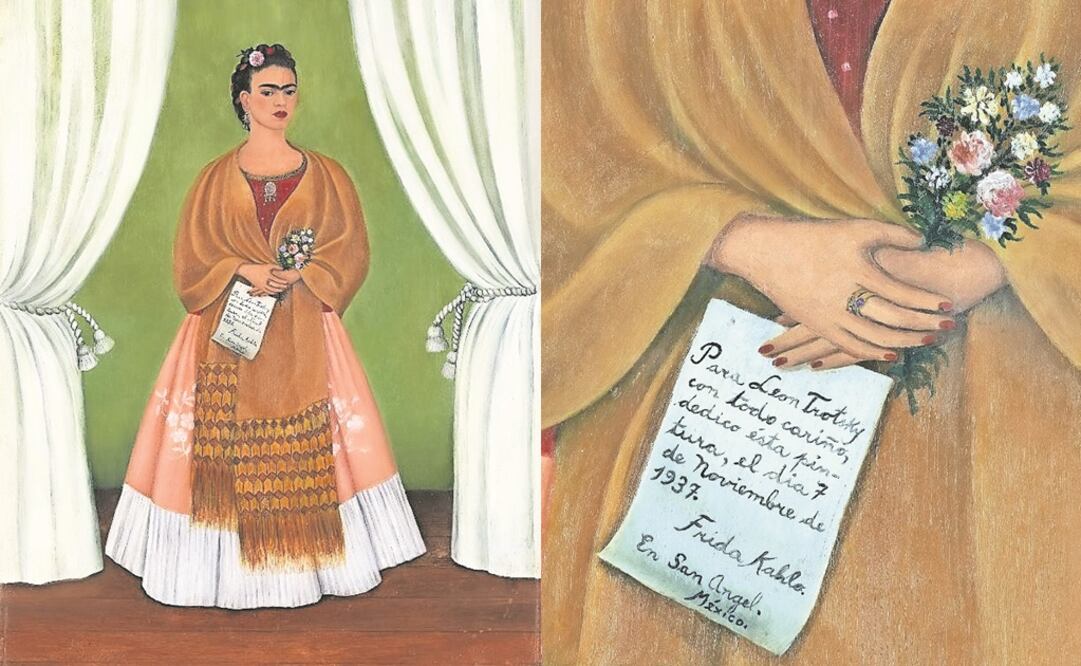 Para Leon Trotsky
con todo cariño,
dedico ésta pin-
tura, el dia 7
de Noviembre de
1937.
Frida Kahlo.
En San Angel.
México.